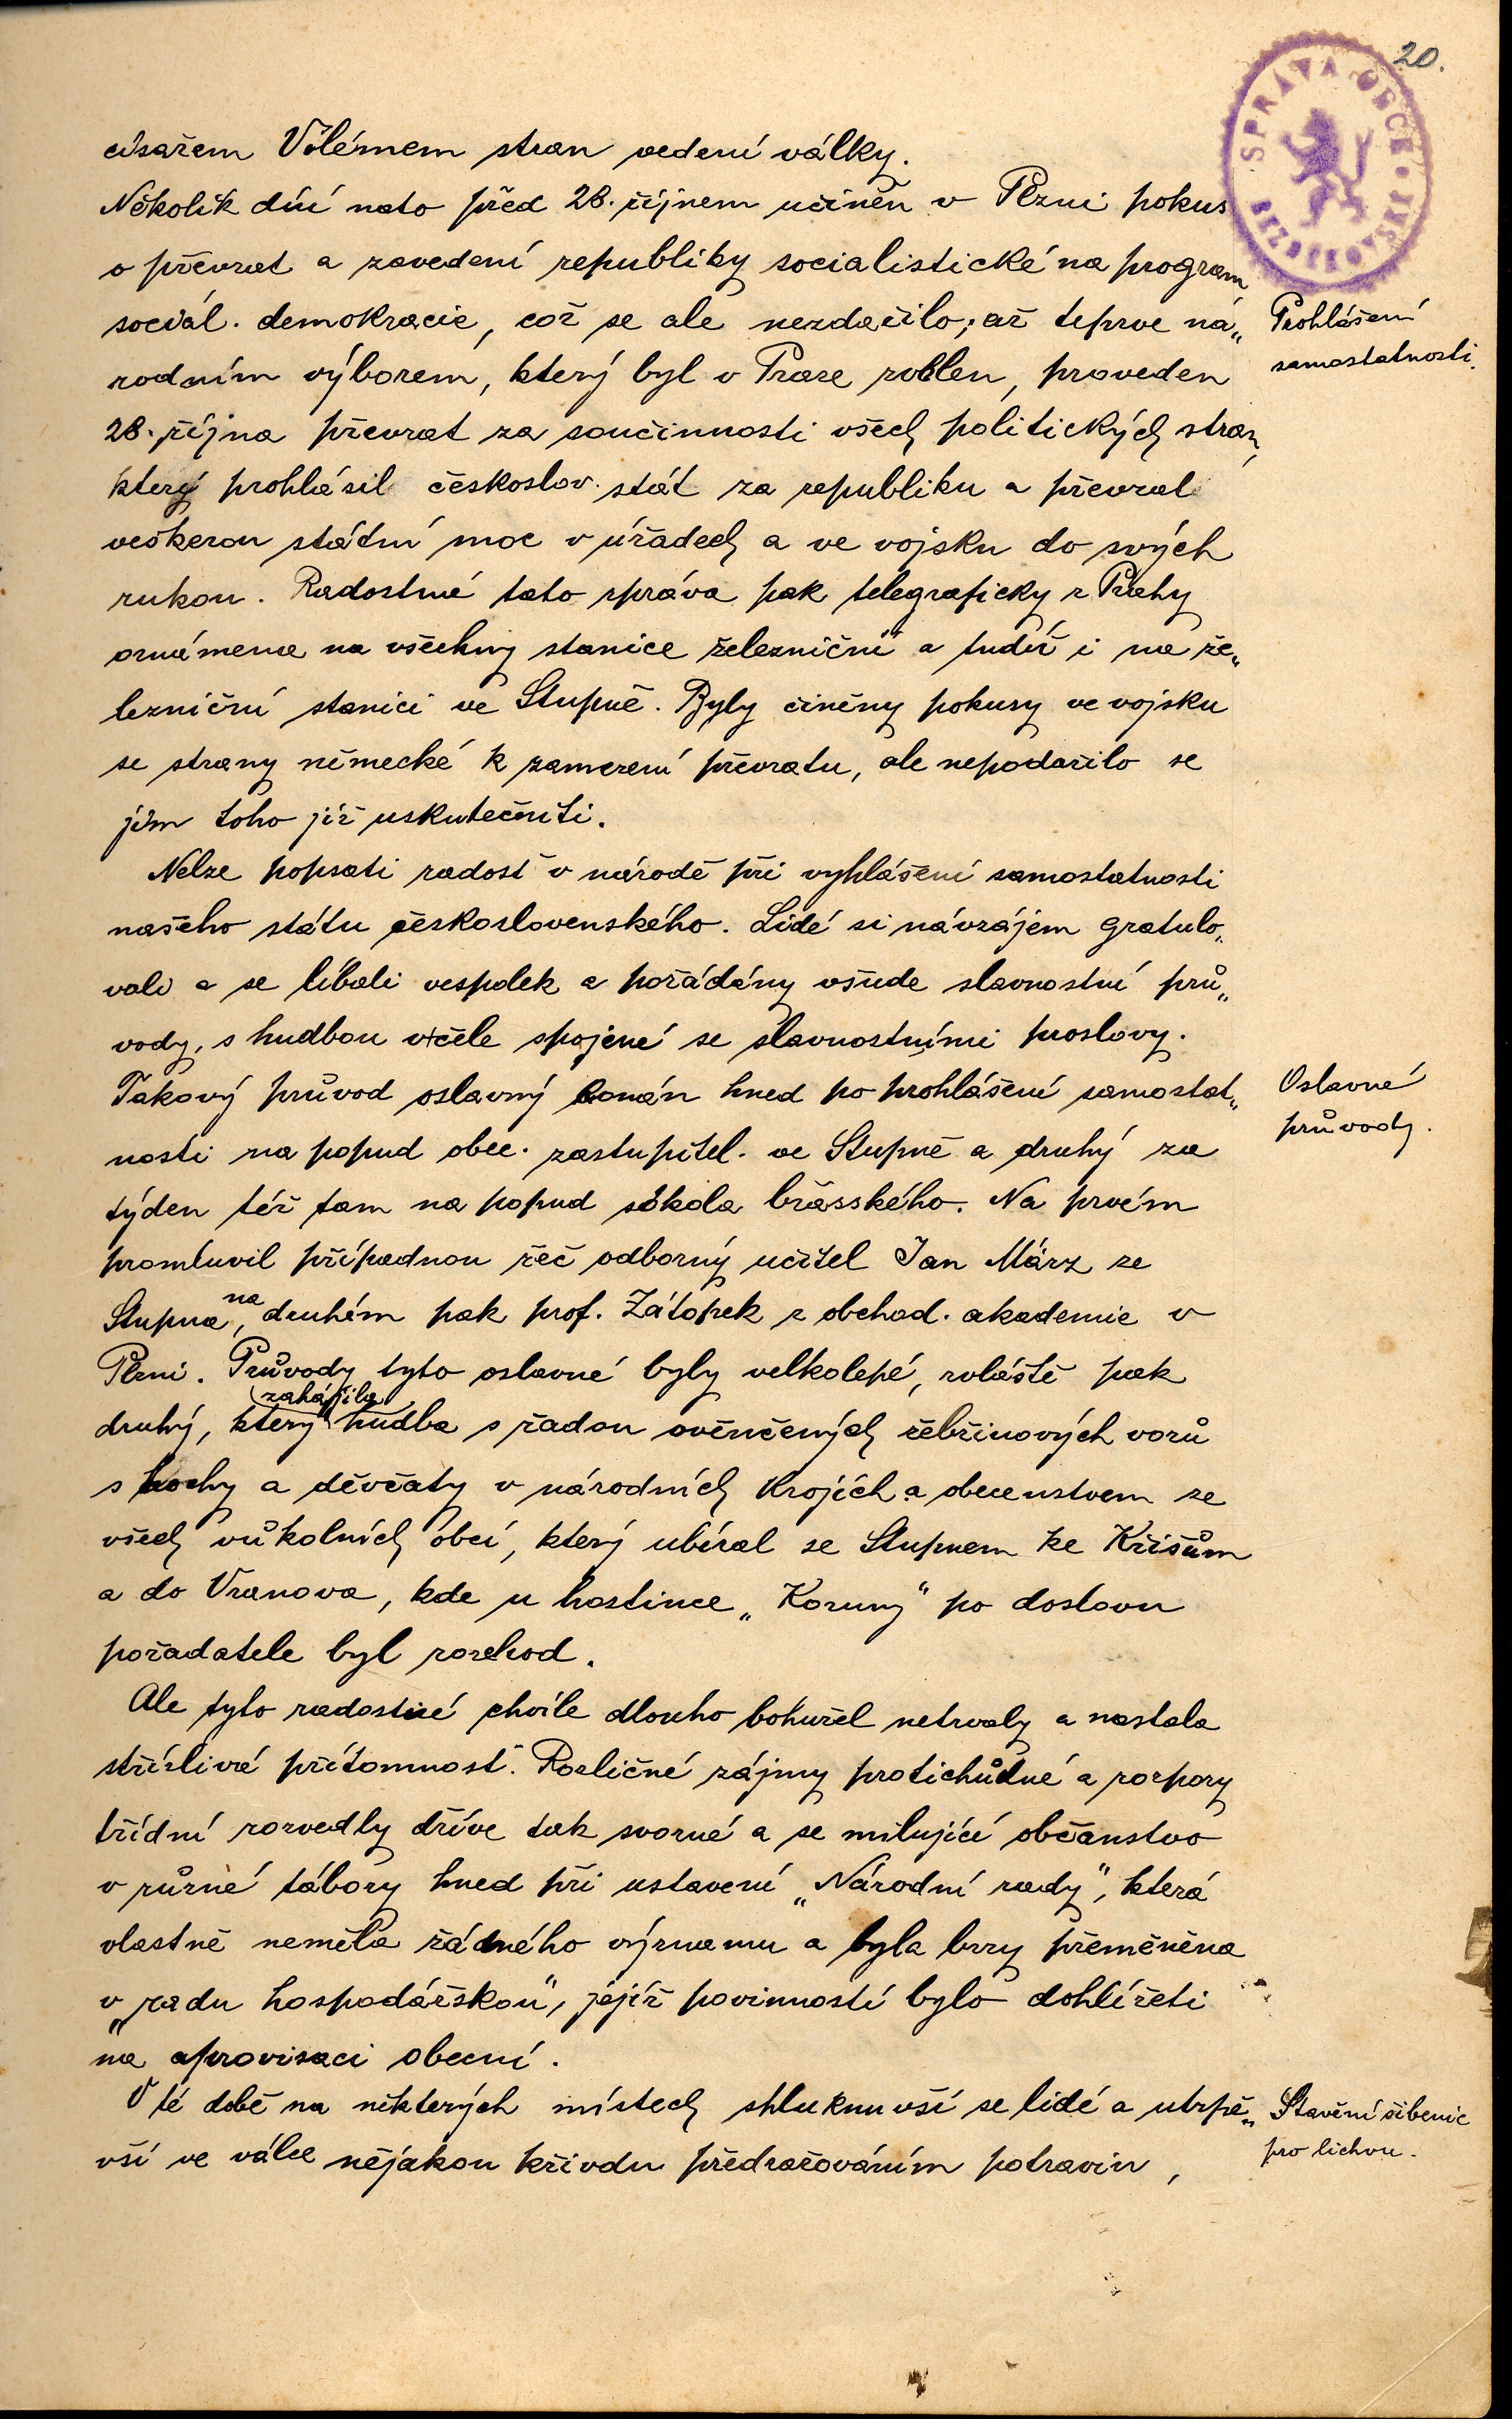 20.
SPRÁVA OBCE
císařem Vilémem stran vedení války.
Několik dní nato před 28. říjnem učiněn v Plzni pokus
o převrat a zavedení republiky socialistické na program
sociál. demokracie, což se ale nezdařilo; až teprve ná„
rodním výborem, který byl v Praze zvolen, proveden
28. října převrat za součinnosti všech politických stran,
který prohlásil českoslov. stát za republiku a převzal
veškerou státní moc v úřadech a ve vojsku do svých
rukou. Radostná tato zpráva pak telegraficky z Prahy
oznámena na všechny stanice železniční a tudíž i na že„
lezniční stanici ve Stupně. Byly činěny pokusy ve vojsku
se strany německé k zamezení převratu, ale nepodařilo se
jim toho již uskutečniti.
Nelze popsati radost v národě při vyhlášení samostatnosti
našeho státu československého. Lidé si návzájem gratulo„
vali a se líbali vespolek a pořádány všude slavnostní prů„
vody, s hudbou v čele spojené se slavnostními proslovy.
Takový průvod oslavný konán hned po prohlášení samostat„
nosti na popud obec. zastupitel. ve Stupně a druhý za
týden též tam na popud sokola břasského. Na prvém
promluvil případnou řeč odborný učitel Jan März ze
Stupna, na druhém pak prof. Zátopek z obchod. akademie v
Plzni. Průvody tyto oslavné byly velkolepé, zvláště pak
druhý, který zahájila hudba s řadou ověnčených žebřinových vozů
s hochy a děvčaty v národních krojích a obecenstvem ze
všech vůkolních obcí, který ubíral se Stupnem ke Křišům
a do Vranova, kde u hostince „Koruny" po doslovu
pořadatele byl rozchod.
Ale tyto radostné chvíle dlouho bohužel netrvaly a nastala
střízlivá přítomnost. Rozličné zájmy protichůdné a rozpory
třídní rozvedly dříve tak svorné a se milující občanstvo
v různé tábory hned při ustavení „Národní rady", která
vlastně neměla žádného významu a byla brzy přeměněna
v „radu hospodářskou", jejíž povinností bylo dohlížeti
na aprovisaci obecní.
V té době na některých místech shluknuvší se lidé a utrpě„
vší ve válce nějakou křivdu předražováním potravin,
Prohlášení
samostatnosti.
Oslavné
průvody.
Stavění šibenic
pro lichvu.